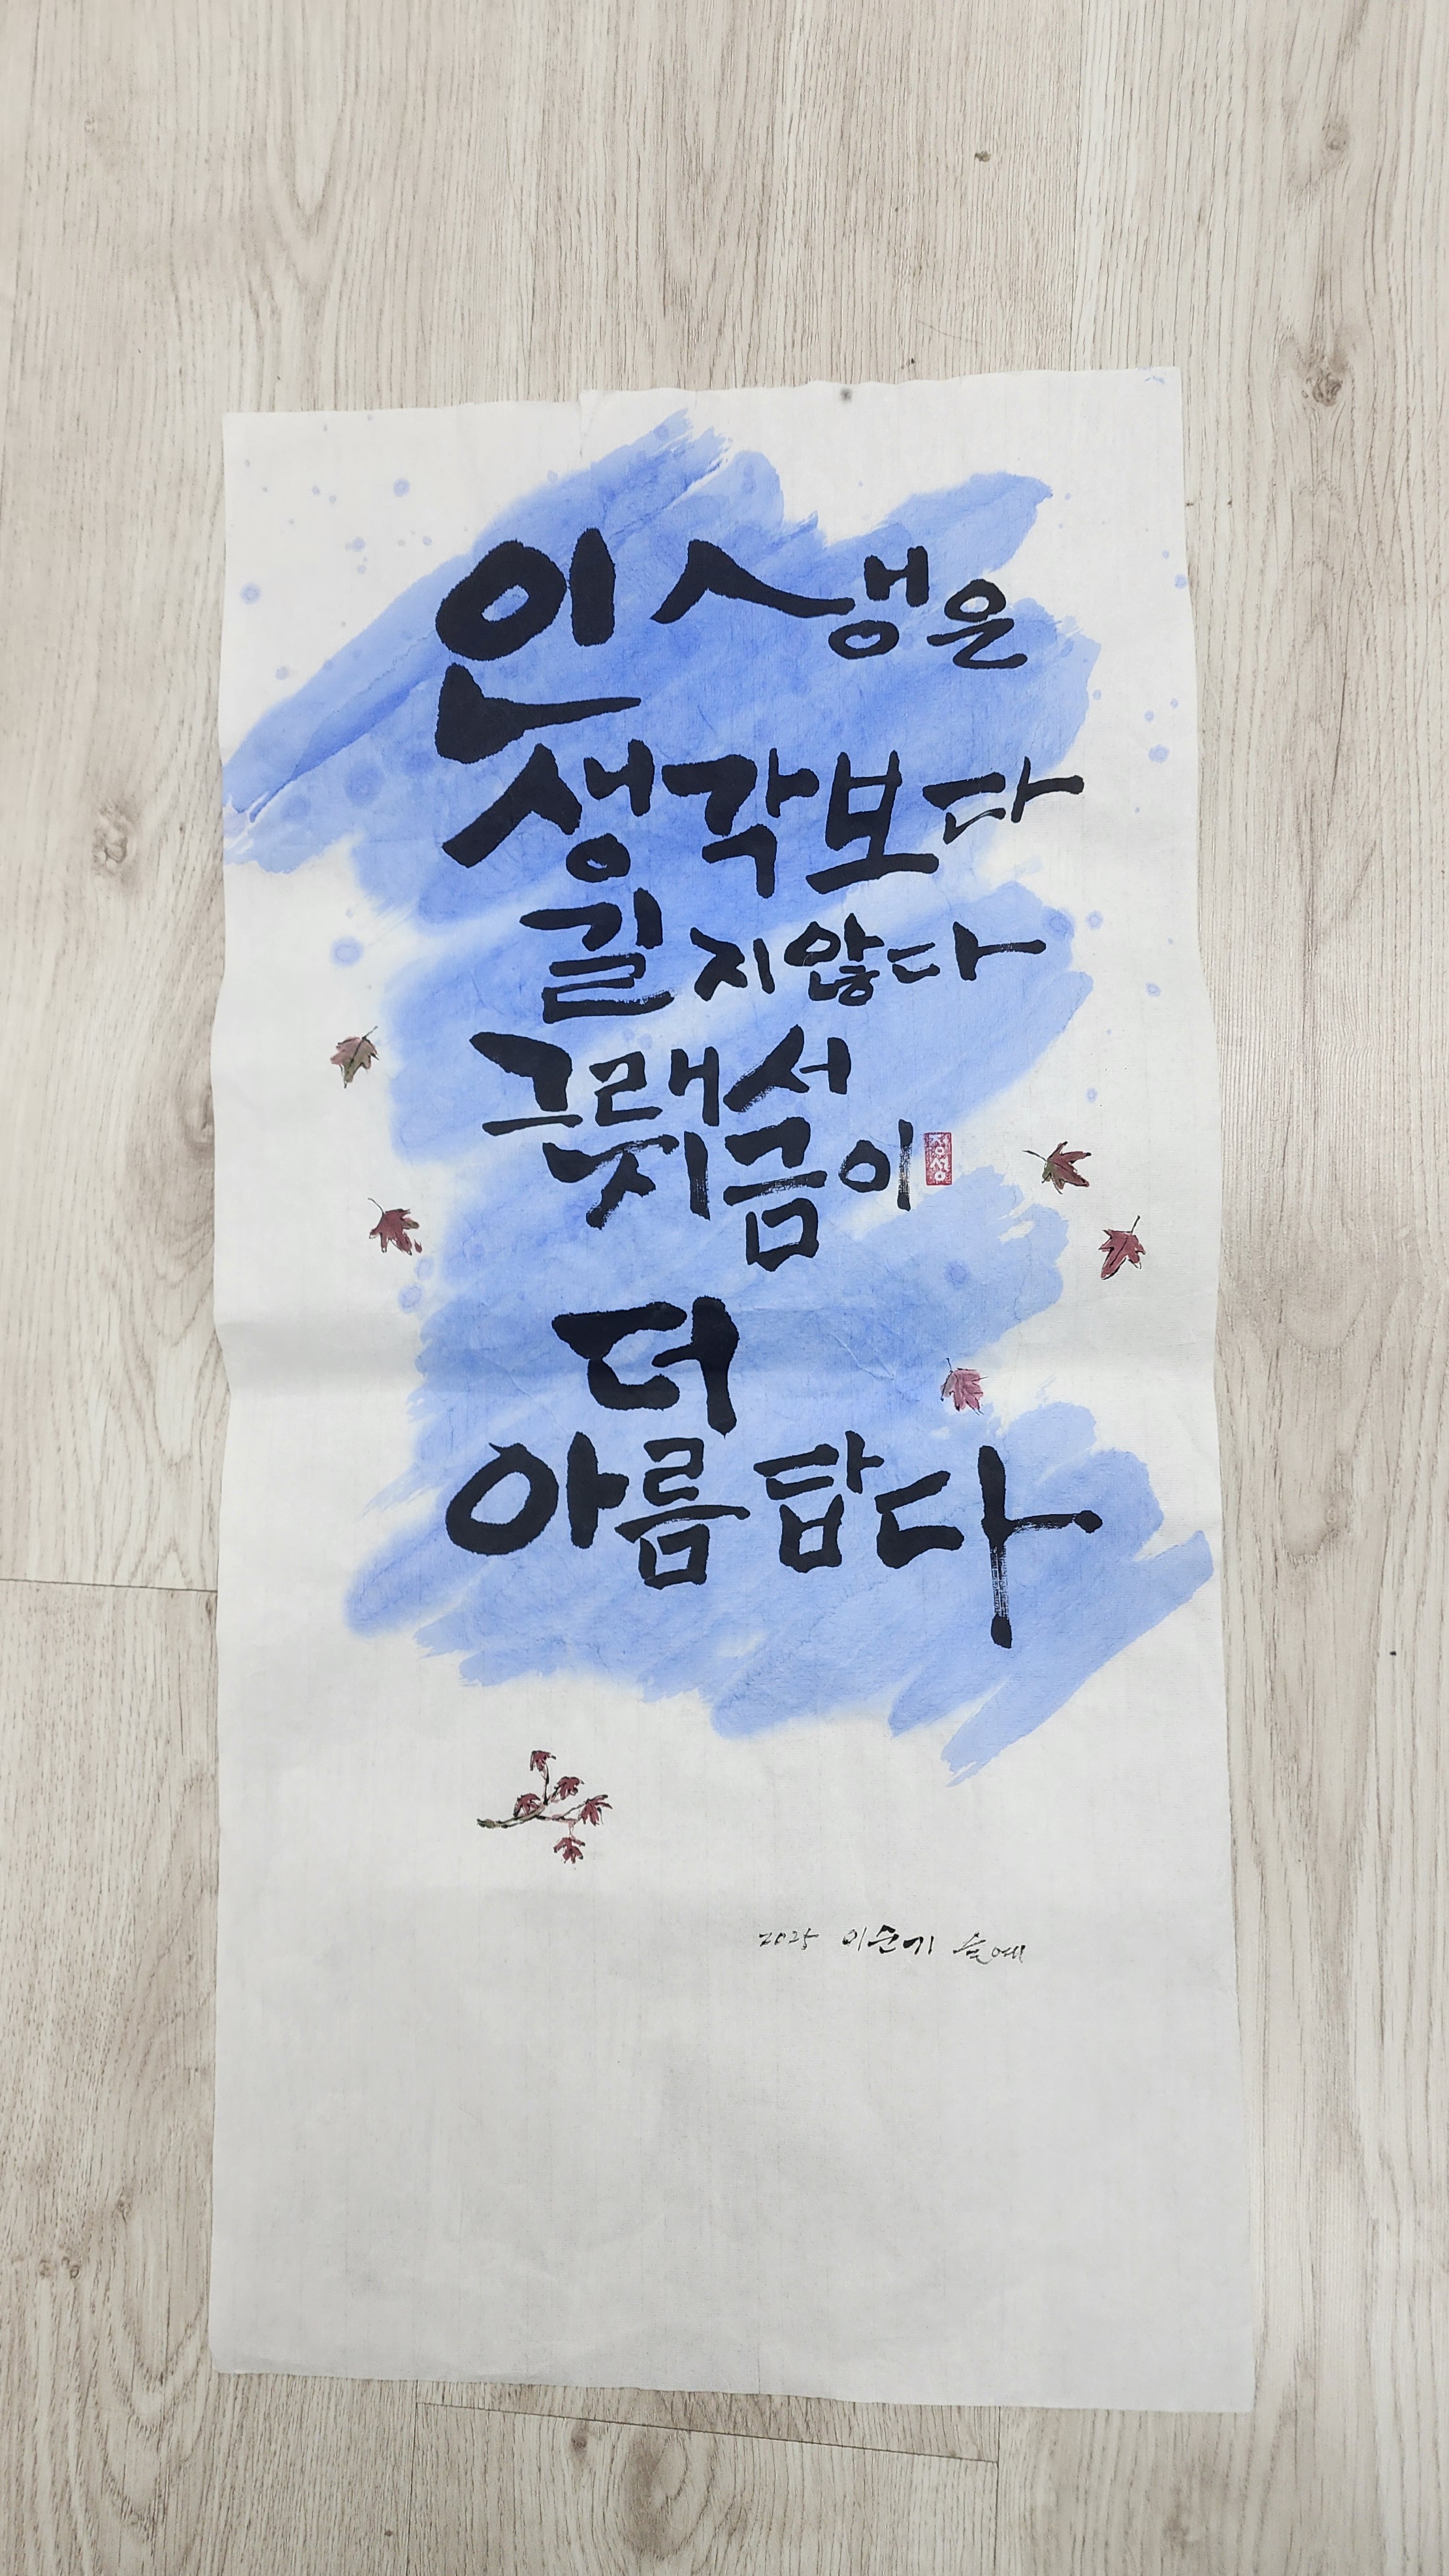 인생은
생각보다
길지않다
그래서
지금이
정성
더
아름답다
2025 이순기